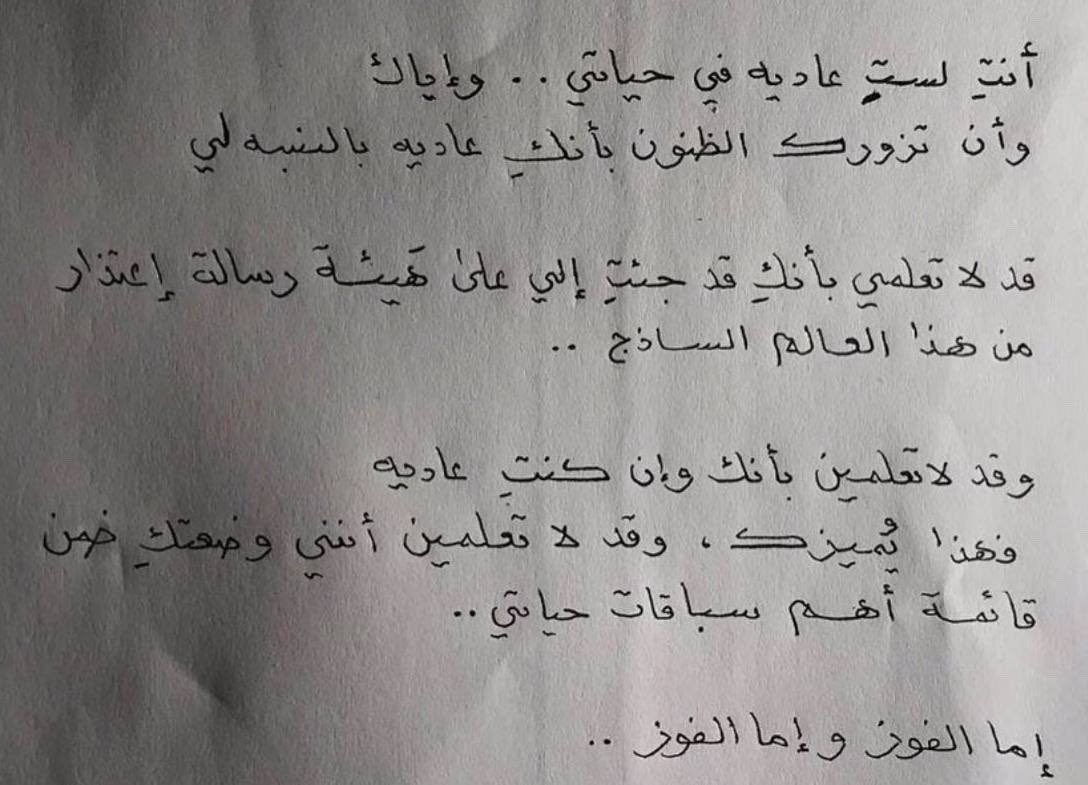 أنتِ لستِ عاديه في حياتي .. وإياك
وأن تزورك الظنون بأنكِ عاديه بالنسبه لي
قد لا تعلمي بأنكِ قد جئتِ إلي على هَيئة رسالة إعتذار
من هذا العالم الساذج ..
وقد لا تعلمين بأنك وإن كنتِ عاديه
فهذا يُميزك ، وقد لا تعلمين أنني وضعتكِ ضمن
قائمة أهم سباقات حياتي ..
إما الفوز وإما الفوز ..